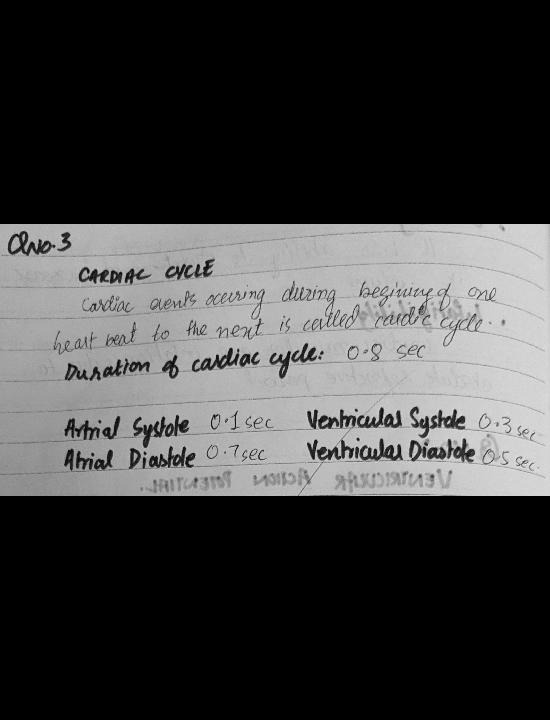 QNo.3
CARDIAC CYCLE
Cardiac events occuring during begining of one
heart beat to the next is called cardic cycle.
Duration of cardiac cycle: 0.8 sec
Artrial Systole 0.1 sec Ventricular Systole 0.3 sec
Atrial Diastole 0.7 sec Ventricular Diastole 0.5 sec.
VENTRICULAR ACTION POTENTIAL..